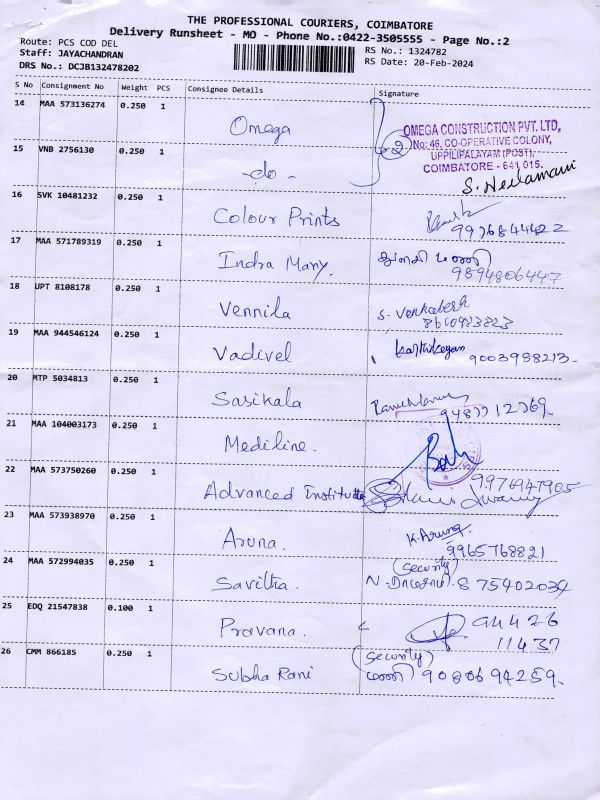 THE PROFESSIONAL COURIERS, COIMBATORE
Delivery Runsheet - MO - Phone No.:0422-3505555 - Page No.:2
Route: PCS COD DEL
RS No.: 1324782
Staff: JAYACHANDRAN
RS Date: 20-Feb-2024
DRS No.: DCJB132478202
S No Consignment No Weight PCS Consignee Details Signature
14 MAA 573136274 0.250 1 Omega
OMEGA CONSTRUCTION PVT. LTD,
No: 48, CO-OPERATIVE COLONY,
UPPILIPALAYAM (POST),
COIMBATORE - 641 015.
2
15 VNB 2756130 0.250 1 -do- S. Neelamani
16 SVK 10481232 0.250 1 Colour Prints
17 MAA 571789319 0.250 1 Indra Mary. மணி 9894806447
18 UPT 8108178 0.250 1 Vennila S. Venkatesh
19 MAA 944546124 0.250 1 Vadivel Karthikeyan 9003988213-
20 MTP 5034813 0.250 1 Sasikala
21 MAA 104003173 0.250 1 Mediline.
22 MAA 573750260 0.250 1 Advanced Institute 9976947905
23 MAA 573938970 0.250 1 Aruna. K. Aruna 9965768821
24 MAA 572994035 0.250 1 Savitha. (Security) N. 875402034
25 EDQ 21547838 0.100 1 Pravana. 94426
11437
26 CMM 866185 0.250 1 Subha Rani (Security) மணி 9080694259-